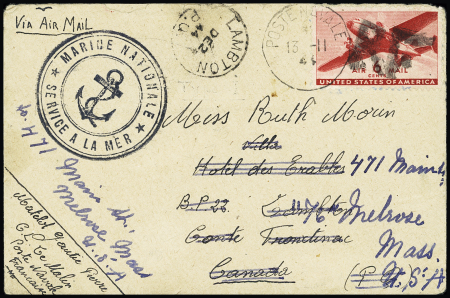 Via Air Mail
MARINE NATIONALE
SERVICE A LA MER
LAMBTON
P.Q.
POSTE NAVALE
13 -11
44
AIR MAIL
UNITED STATES OF AMERICA
Miss Ruth Morin
Villa
Hotel des Erables 471 Main St.
B.P. 23
476 Melrose
Comté Frontenac Mass.
Canada U.S.A
to 471 Main St.
Melrose Mass
U.S.A
Matelot Gautier Pierre
Le Malin
Poste Navale
Française